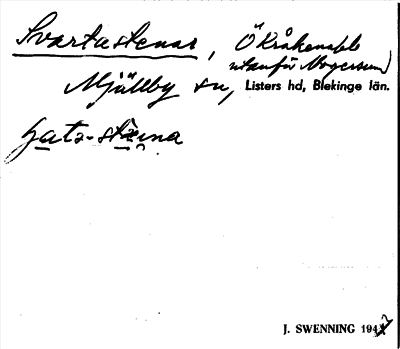 Svartastenar, Ö Kråkenabb
utanför Nogersund
Mjällby sn, Listers hd, Blekinge län.
J. SWENNING 1947